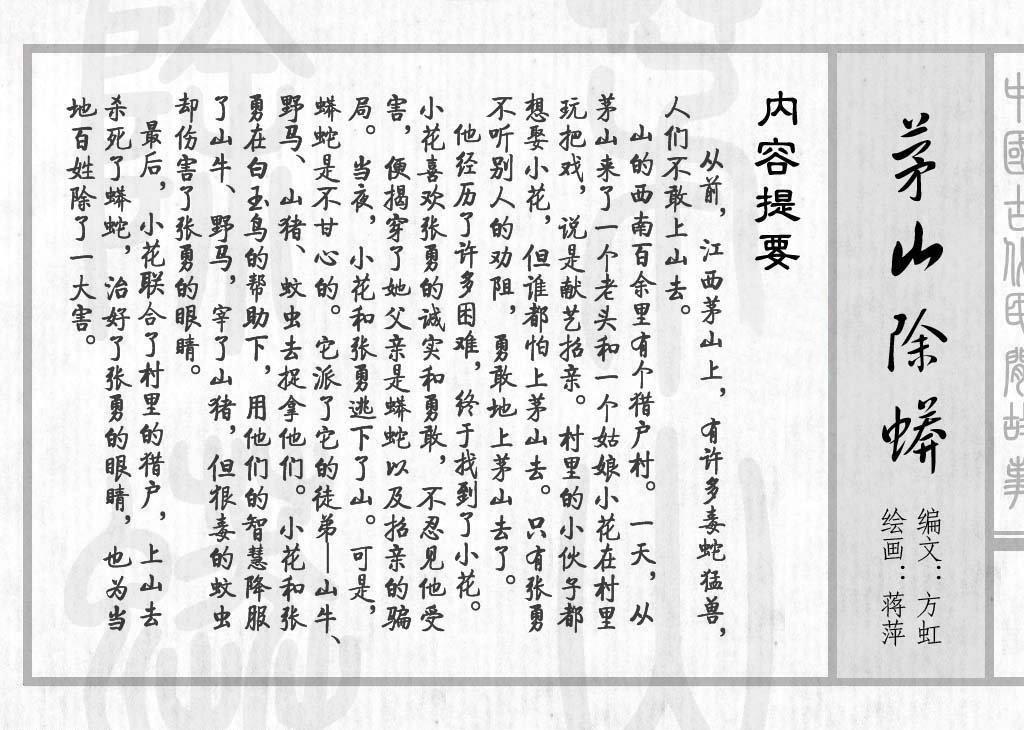 中國古代民間故事
茅山除蟒
编文：方虹
绘画：蒋萍
内容提要
从前，江西茅山上，有许多毒蛇猛兽，
人们不敢上山去。
山的西南百余里有个猎户村。一天，从
茅山来了一个老头和一个姑娘小花在村里
玩把戏，说是献艺招亲。村里的小伙子都
想娶小花，但谁都怕上茅山去。只有张勇
不听别人的劝阻，勇敢地上茅山去了。
他经历了许多困难，终于找到了小花。
小花喜欢张勇的诚实和勇敢，不忍见他受
害，便揭穿了她父亲是蟒蛇以及招亲的骗
局。当夜，小花和张勇逃下了山。可是，
蟒蛇是不甘心的。它派了它的徒弟——山牛、
野马、山猪、蚊虫去捉拿他们。小花和张
勇在白玉鸟的帮助下，用他们的智慧降服
了山牛、野马，宰了山猪，但狠毒的蚊虫
却伤害了张勇的眼睛。
最后，小花联合了村里的猎户，上山去
杀死了蟒蛇，治好了张勇的眼睛，也为当
地百姓除了一大害。